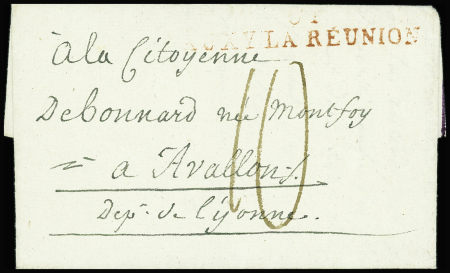 51
LA RÉUNION
à la Citoyenne
Débonnard née Montfoy
= a Avallon
Dept. de l'yonne.
10